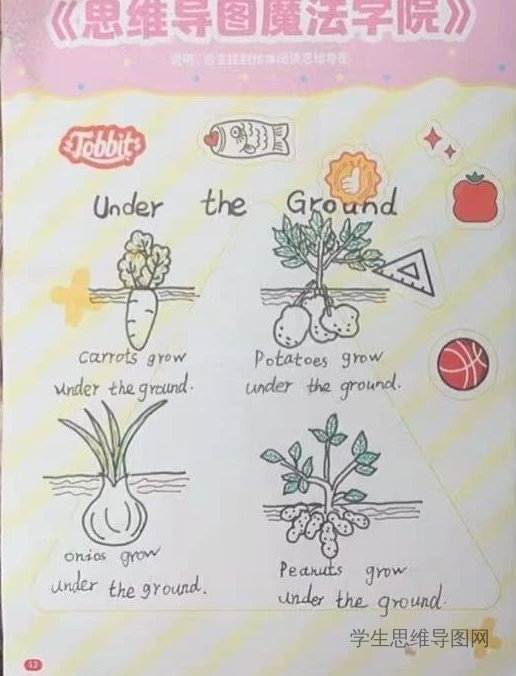 《思维导图魔法学院》
Tobbit
Under the Ground
Carrots grow
under the ground.
Potatoes grow
under the ground.
onios grow
under the ground.
Peanuts grow
under the ground.
学生思维导图网
12